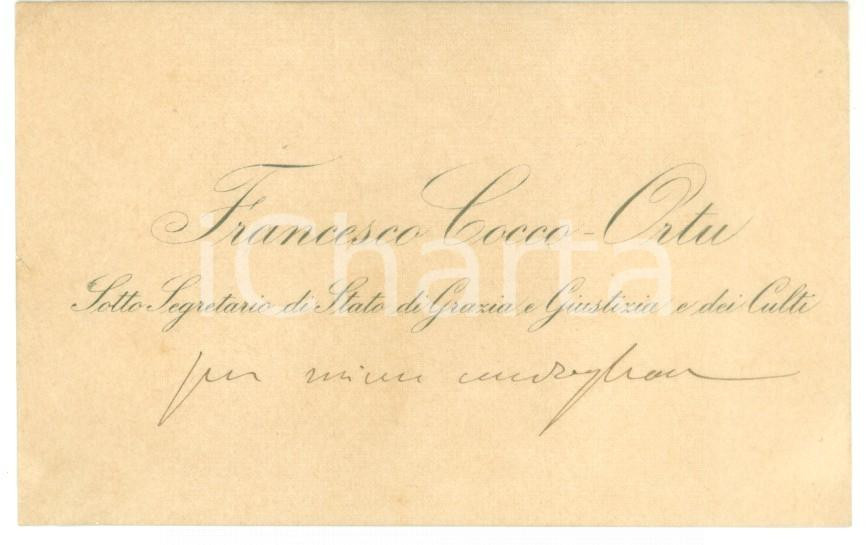 Francesco Cocco-Ortu
Sotto Segretario di Stato di Grazia e Giustizia e dei Culti
iCharta
per